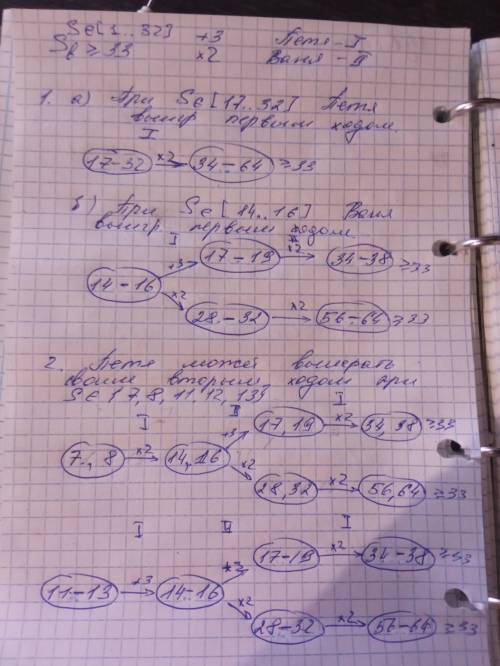 S∈[1..32] +3 Петя-I
Sв ≥ 33 ×2 Ваня-II
1. а) При S∈[17..32] Петя
выигр первым ходом.
I
17-32 ×2 34-64 ≥33
б) При S∈[14..16] Ваня
выигр. первым ходом.
I II
+3 17-19 ×2 34-38 ≥33
14-16
×2 28-32 ×2 56-64 ≥33
2. Петя может выиграть
своим вторым ходом при
S∈{7,8,11,12,13}
I II I
+3 17,19 ×2 34,38 ≥33
7, 8 ×2 14,16
×2 28,32 ×2 56,64 ≥33
I II I
+3 17-19 ×2 34-38 ≥33
11-13 +3 14-16
×2 28-32 ×2 56-64 ≥33